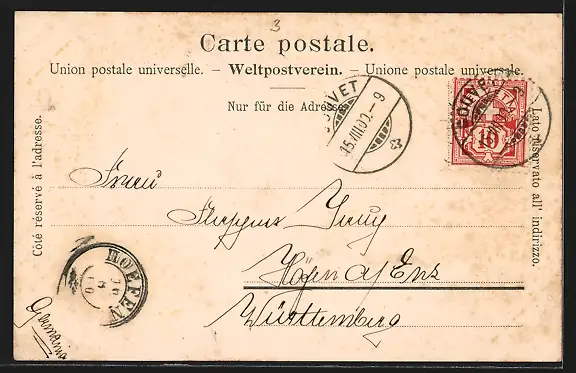 3
Carte postale.
Union postale universelle. – Weltpostverein. – Unione postale universale.
Nur für die Adresse
Côté réservé à l'adresse.
Lato riservato all' indirizzo.
COUVET
15.VIII.00.–9
COUVET
10
Frau
Jung
Höfen a/Enz
Württemberg
HOEFEN
Germania